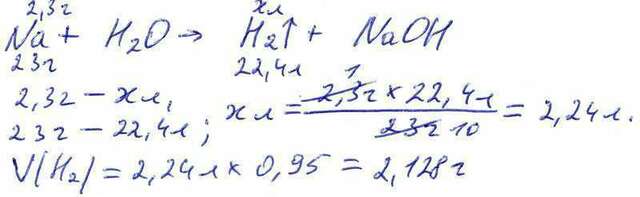 2,3г хл
Na + H2O → H2↑ + NaOH
23г 22,4л
2,3г – хл, 1
23г – 22,4л; хл = 2,3г × 22,4л / 23г 10 = 2,24л.
V(H2) = 2,24л × 0,95 = 2,128г